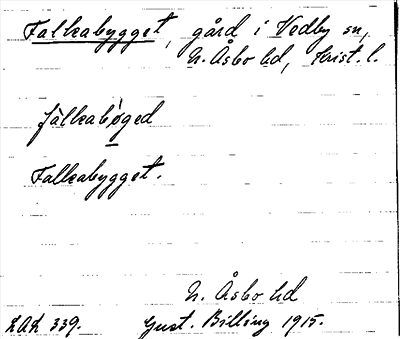 Falkabygget, gård i Vedby sn,
N. Åsbo hd, Krist. l.
fàlkabỳged
Falkabygget.
N. Åsbo hd
LAL 339. Gust. Billing 1915.